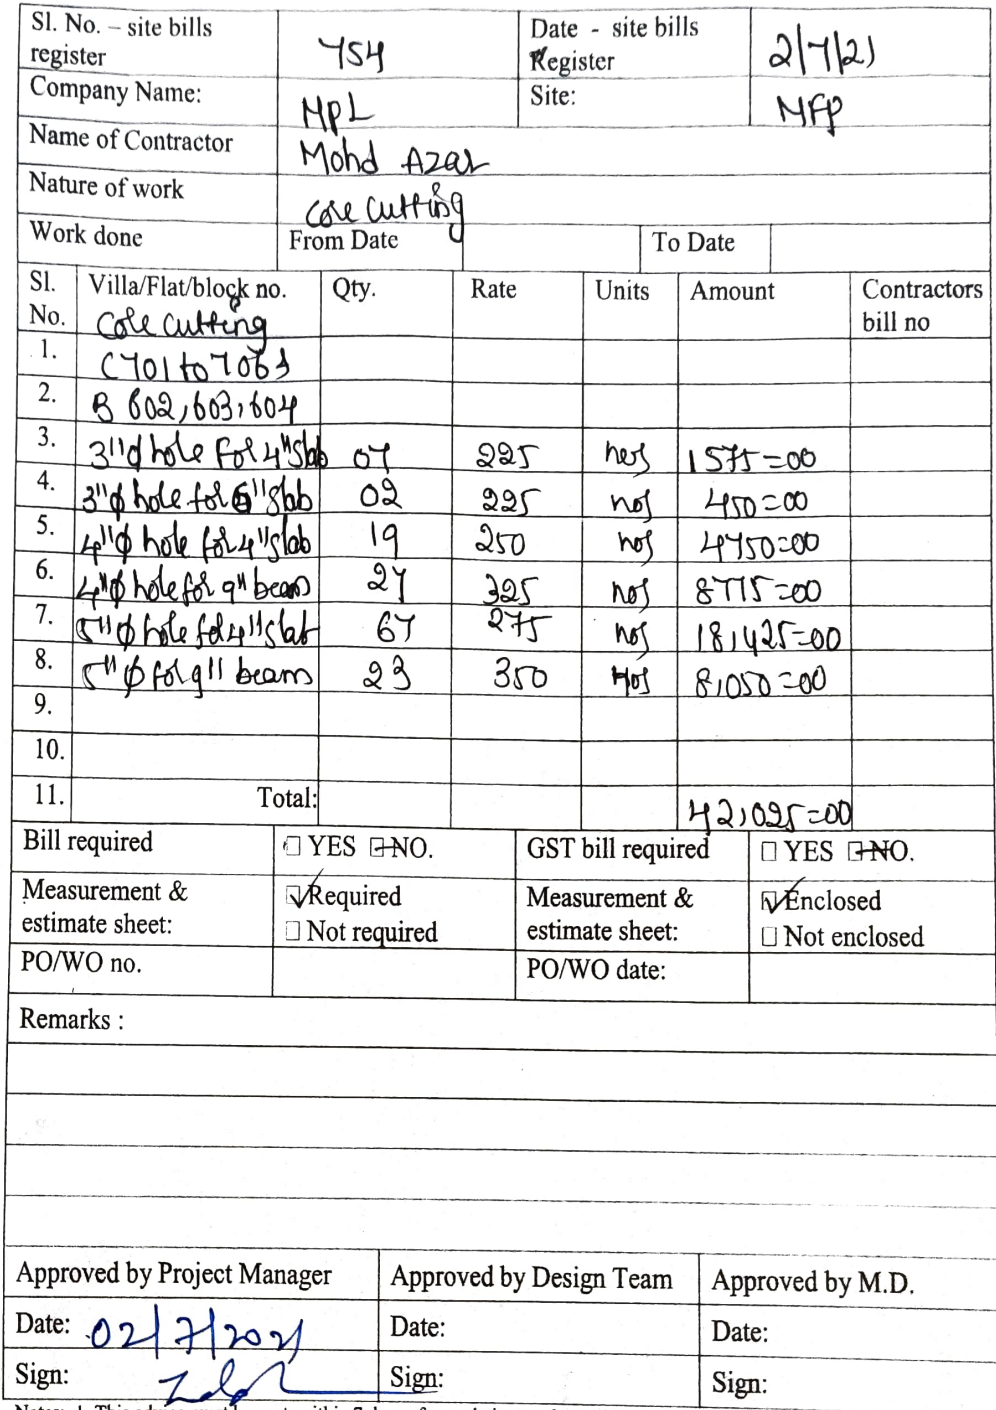 Sl. No. – site bills register 754 Date - site bills Register 2/7/21
Company Name: MPL Site: MFP
Name of Contractor Mohd Azar
Nature of work Core Cutting
Work done From Date To Date
Sl. No. Villa/Flat/block no. Qty. Rate Units Amount Contractors bill no
Core cutting
1. C 701 to 706
2. B 602, 603, 604
3. 3"φ hole for 4" slab 07 225 nos 1575=00
4. 3"φ hole for 6" slab 02 225 nos 450=00
5. 4"φ hole for 4" slab 19 250 nos 4750=00
6. 4"φ hole for 9" beam 27 325 nos 8775=00
7. 5"φ hole for 4" slab 67 275 nos 18,425=00
8. 5"φ for 9" beam 23 350 Nos 8,050=00
9.
10.
11. Total: 42,025=00
Bill required YES NO. GST bill required YES NO.
Measurement & estimate sheet: Required Not required Measurement & estimate sheet: Enclosed Not enclosed
PO/WO no. PO/WO date:
Remarks :
Approved by Project Manager Approved by Design Team Approved by M.D.
Date: 02/7/2021 Date: Date:
Sign: Sign: Sign: